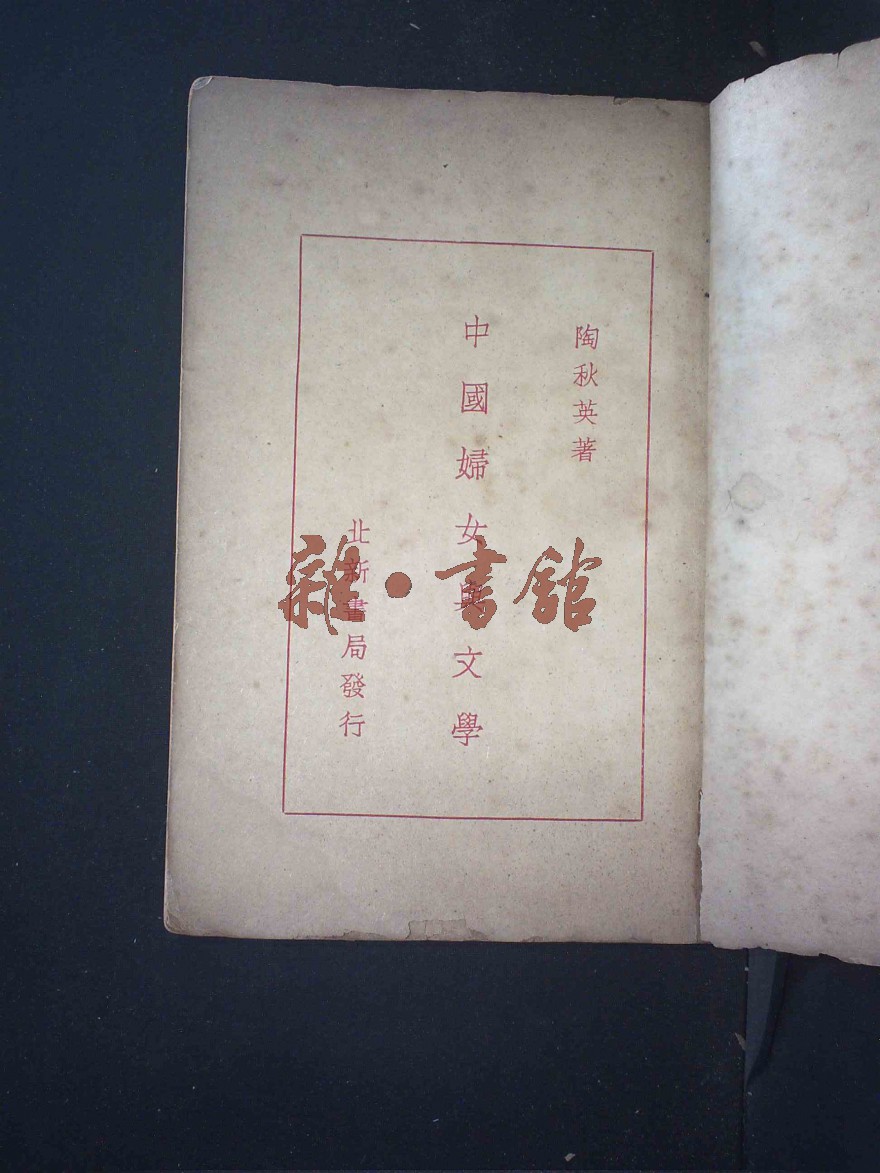 陶秋英著
中國婦女與文學
北新書局發行
雜·書館